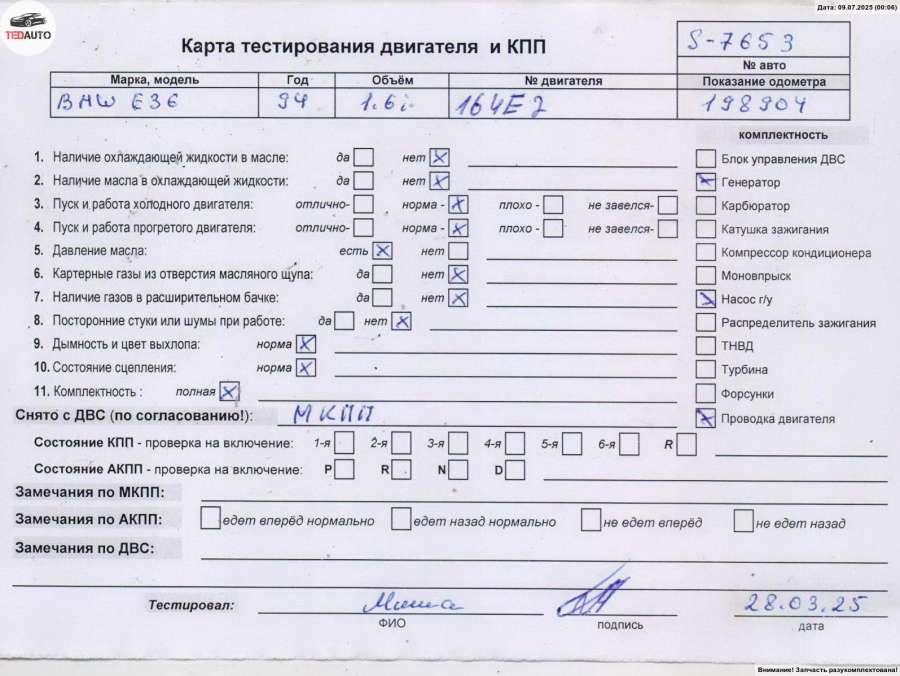 Дата: 09.07.2025 (00:06)
TEDAUTO
Карта тестирования двигателя и КПП
S-7653
№ авто
Марка, модель Год Объём № двигателя Показание одометра
BMW E36 94 1.6i 164E2 198904
комплектность
1. Наличие охлаждающей жидкости в масле: да нет X Блок управления ДВС
2. Наличие масла в охлаждающей жидкости: да нет X Генератор X
3. Пуск и работа холодного двигателя: отлично- норма - X плохо - не завелся- Карбюратор
4. Пуск и работа прогретого двигателя: отлично- норма - X плохо - не завелся- Катушка зажигания
5. Давление масла: есть X нет Компрессор кондиционера
6. Картерные газы из отверстия масляного щупа: да нет X Моновпрыск
7. Наличие газов в расширительном бачке: да нет X Насос г/у X
8. Посторонние стуки или шумы при работе: да нет X Распределитель зажигания
9. Дымность и цвет выхлопа: норма X ТНВД
10. Состояние сцепления: норма X Турбина
11. Комплектность : полная X Форсунки
Снято с ДВС (по согласованию!): МКПП Проводка двигателя X
Состояние КПП - проверка на включение: 1-я 2-я 3-я 4-я 5-я 6-я R
Состояние АКПП - проверка на включение: P R N D
Замечания по МКПП:
Замечания по АКПП: едет вперёд нормально едет назад нормально не едет вперёд не едет назад
Замечания по ДВС:
Тестировал: Миша 28.03.25
ФИО подпись дата
Внимание! Запчасть разукомплектована!